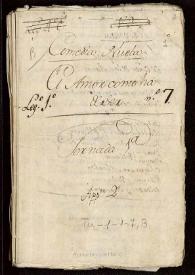 Comedia Nueva
El Amor como ha
de ser
Leg.º 1.º
n.º 7
Jornada 1.ª
Ap.º D.
Tea-1-1-7, B